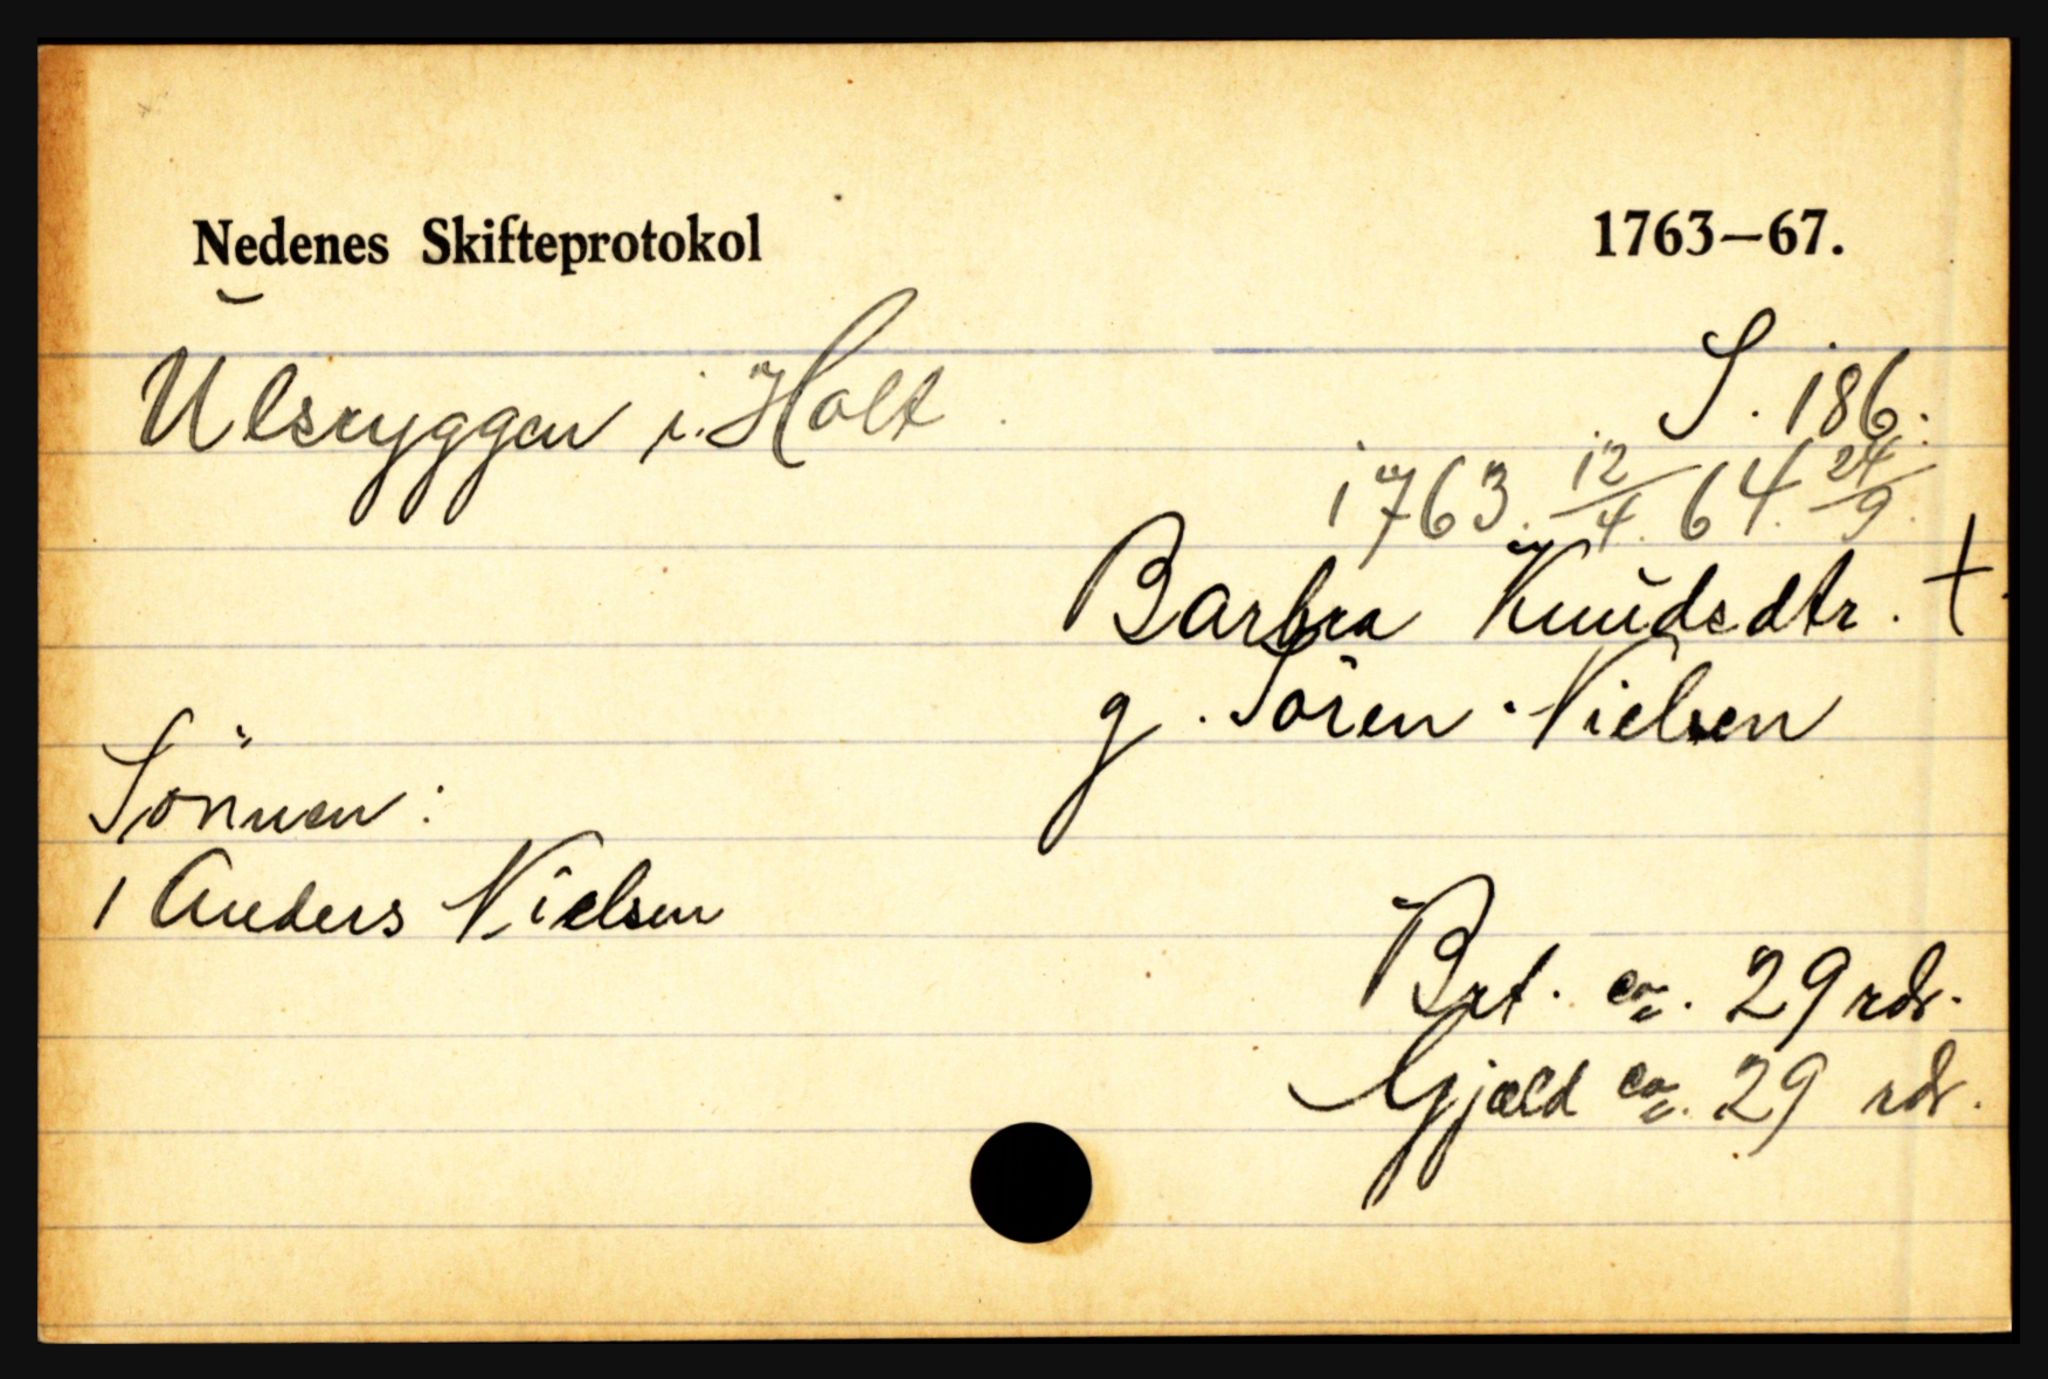 Nedenes Skifteprotokol 1763—67.
Ulsryggen i. Holt
S. 186.
1763. 12/4. 64. 24/9.
Barbra Knudsdtr. †
g. Sören Nielsen
Sönnen:
1 Anders Nielsen
Brt. ca. 29 rdr.
Gjæld ca. 29 rdr.